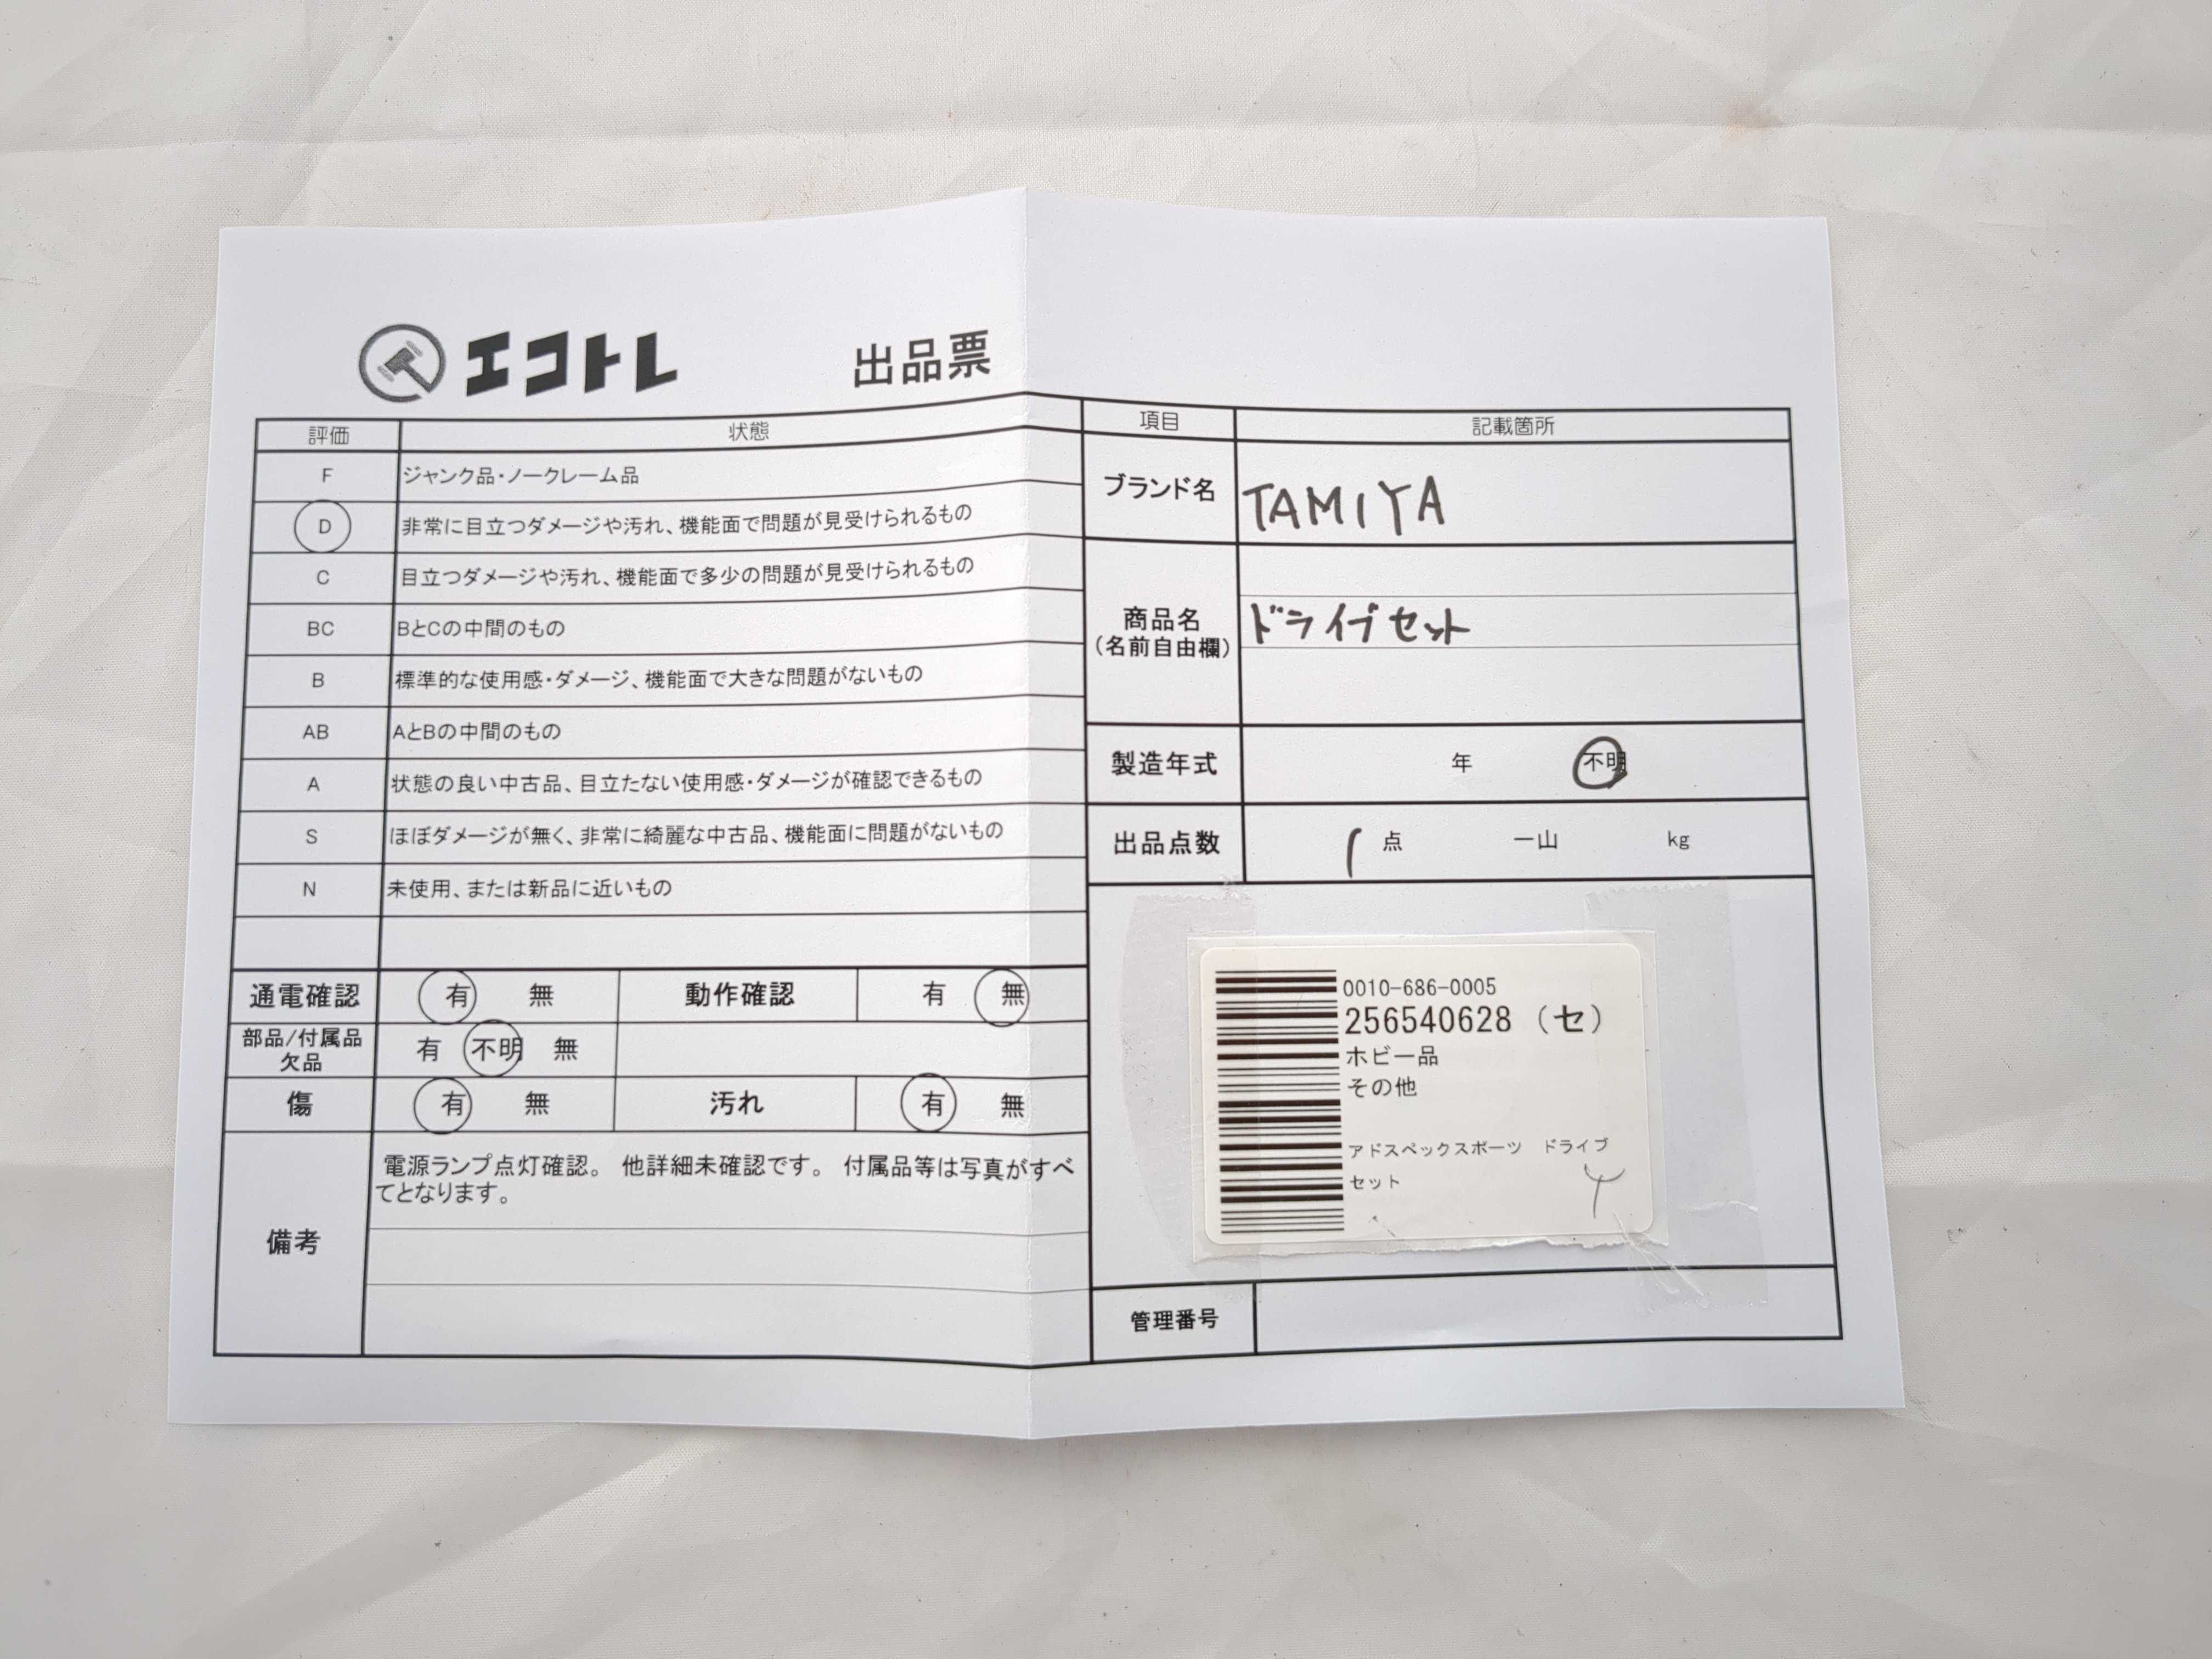 エコトレ 出品票
評価 状態
F ジャンク品・ノークレーム品
D 非常に目立つダメージや汚れ、機能面で問題が見受けられるもの
C 目立つダメージや汚れ、機能面で多少の問題が見受けられるもの
BC BとCの中間のもの
B 標準的な使用感・ダメージ、機能面で大きな問題がないもの
AB AとBの中間のもの
A 状態の良い中古品、目立たない使用感・ダメージが確認できるもの
S ほぼダメージが無く、非常に綺麗な中古品、機能面に問題がないもの
N 未使用、または新品に近いもの
通電確認 有 無 動作確認 有 無
部品/付属品
欠品
有 不明 無
傷 有 無 汚れ 有 無
備考
電源ランプ点灯確認。 他詳細未確認です。 付属品等は写真がすべ
てとなります。
項目 記載箇所
ブランド名 TAMIYA
商品名
(名前自由欄)
ドライブセット
製造年式 年 不明
出品点数 1 点 一山 kg
0010-686-0005
256540628 (セ)
ホビー品
その他
アドスペックスポーツ ドライブ
セット
管理番号